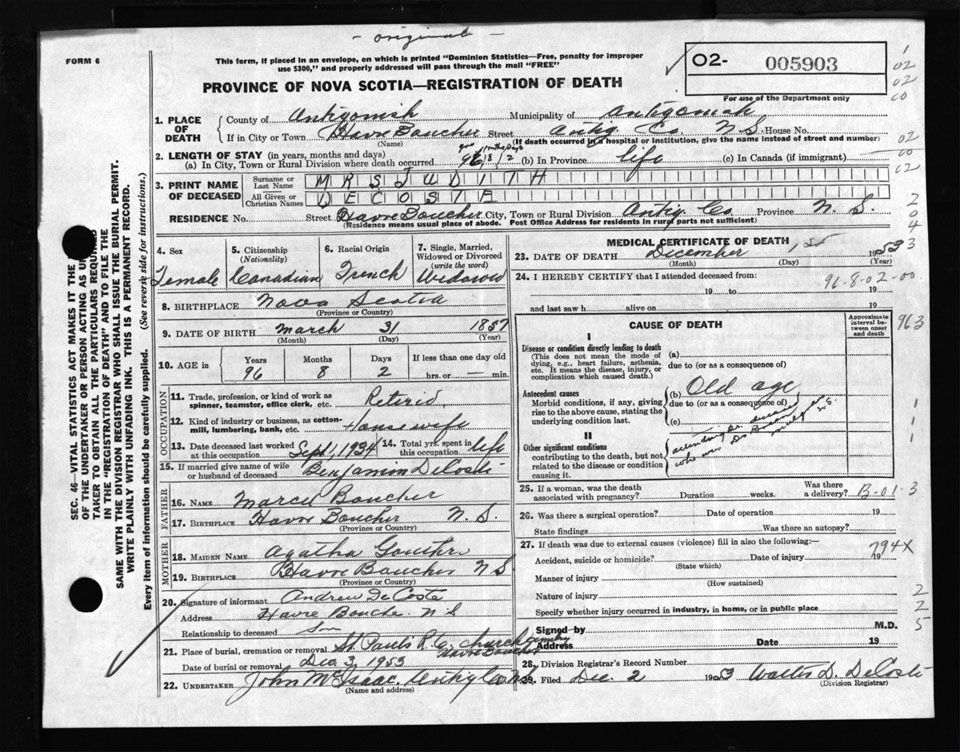 - original -
FORM 6
This form, if placed in an envelope, on which is printed "Dominion Statistics—Free, penalty for improper
use $300," and properly addressed will pass through the mail "FREE"
PROVINCE OF NOVA SCOTIA—REGISTRATION OF DEATH
02- 005903
For use of the Department only
1. PLACE OF DEATH
County of Antigonish Municipality of Antigonish
If in City or Town Havre Boucher Street Antig Co N S. House No.
(Name) (If death occurred in a hospital or institution, give the name instead of street and number)
2. LENGTH OF STAY (in years, months and days)
(a) In City, Town or Rural District where death occurred 96 8 2 (b) In Province life (c) In Canada (if immigrant)
3. PRINT NAME OF DECEASED
Surname or Last Name MRS JUDITH
All Given or Christian Names DECOSTE
RESIDENCE No. Street Havre Boucher City, Town or Rural Division Antig Co. Province N. S.
(Residence means usual place of abode. Post Office Address for residents in rural parts not sufficient)
4. Sex Female
5. Citizenship (Nationality) Canadian
6. Racial Origin French
7. Single, Married, Widowed or Divorced (write the word) Widowed
8. BIRTHPLACE Nova Scotia
(Province or Country)
9. DATE OF BIRTH March 31 1857
(Month) (Day) (Year)
10. AGE in Years 96 Months 8 Days 2 If less than one day old hrs. or — min.
OCCUPATION
11. Trade, profession, or kind of work as spinner, teamster, office clerk, etc. Retired
12. Kind of industry or business, as cotton-mill, lumbering, bank, etc. House wife
13. Date deceased last worked at this occupation Sept, 1934 14. Total yrs. spent in this occupation life
15. If married give name of wife or husband of deceased Benjamin DeCoste
FATHER
16. NAME Boucher
17. BIRTHPLACE Havre Boucher N. S.
(Province or Country)
MOTHER
18. MAIDEN NAME Agatha
19. BIRTHPLACE Havre Boucher N S
(Province or Country)
20. Signature of informant Andrew DeCoste
Address Havre Bouche. N S
Relationship to deceased Son
21. Place of burial, cremation or removal St Pauls R.C. Church cemetry Havre Boucher
Date of burial or removal Dec 3, 1953
22. UNDERTAKER John McIsaac,
(Name and address)
MEDICAL CERTIFICATE OF DEATH
23. DATE OF DEATH December 1st 1953
(Month) (Day) (Year)
24. I HEREBY CERTIFY that I attended deceased from:
96-8-02-00
19 to 19
and last saw h alive on 19
CAUSE OF DEATH
Approximate interval between onset and death
I
Disease or condition directly leading to death
(This does not mean the mode of dying, e.g., heart failure, asthenia, etc. It means the disease, injury, or complication which caused death.)
(a)
due to (or as a consequence of)
Antecedent causes
Morbid conditions, if any, giving rise to the above cause, stating the underlying condition last.
(b) Old age
due to (or as a consequence of)
(c)
II
Other significant conditions
contributing to the death, but not related to the disease or condition causing it.
25. If a woman, was the death associated with pregnancy? Duration weeks. Was there a delivery? B-01-3
26. Was there a surgical operation? Date of operation 19
State findings Was there an autopsy?
27. If death was due to external causes (violence) fill in also the following:— 794X
Accident, suicide or homicide? Date of injury 19
(State which)
Manner of injury
(How sustained)
Nature of injury
Specify whether injury occurred in industry, in home, or in public place
Signed by M.D.
Address Date 19
28. Division Registrar's Record Number
29. Filed Dec. 2 1953 Walter D. DeCoste
(Division Registrar)
SEC. 46—VITAL STATISTICS ACT MAKES IT THE
OF THE UNDERTAKER OR PERSON ACTING AS
TAKER TO OBTAIN ALL THE PARTICULARS REQUIRED
IN THE "REGISTRATION OF DEATH" AND TO FILE THE
SAME WITH THE DIVISION REGISTRAR WHO SHALL ISSUE THE BURIAL PERMIT.
WRITE PLAINLY WITH UNFADING INK. THIS IS A PERMANENT RECORD.
Every item of information should be carefully supplied. (See reverse side for instructions.)
963